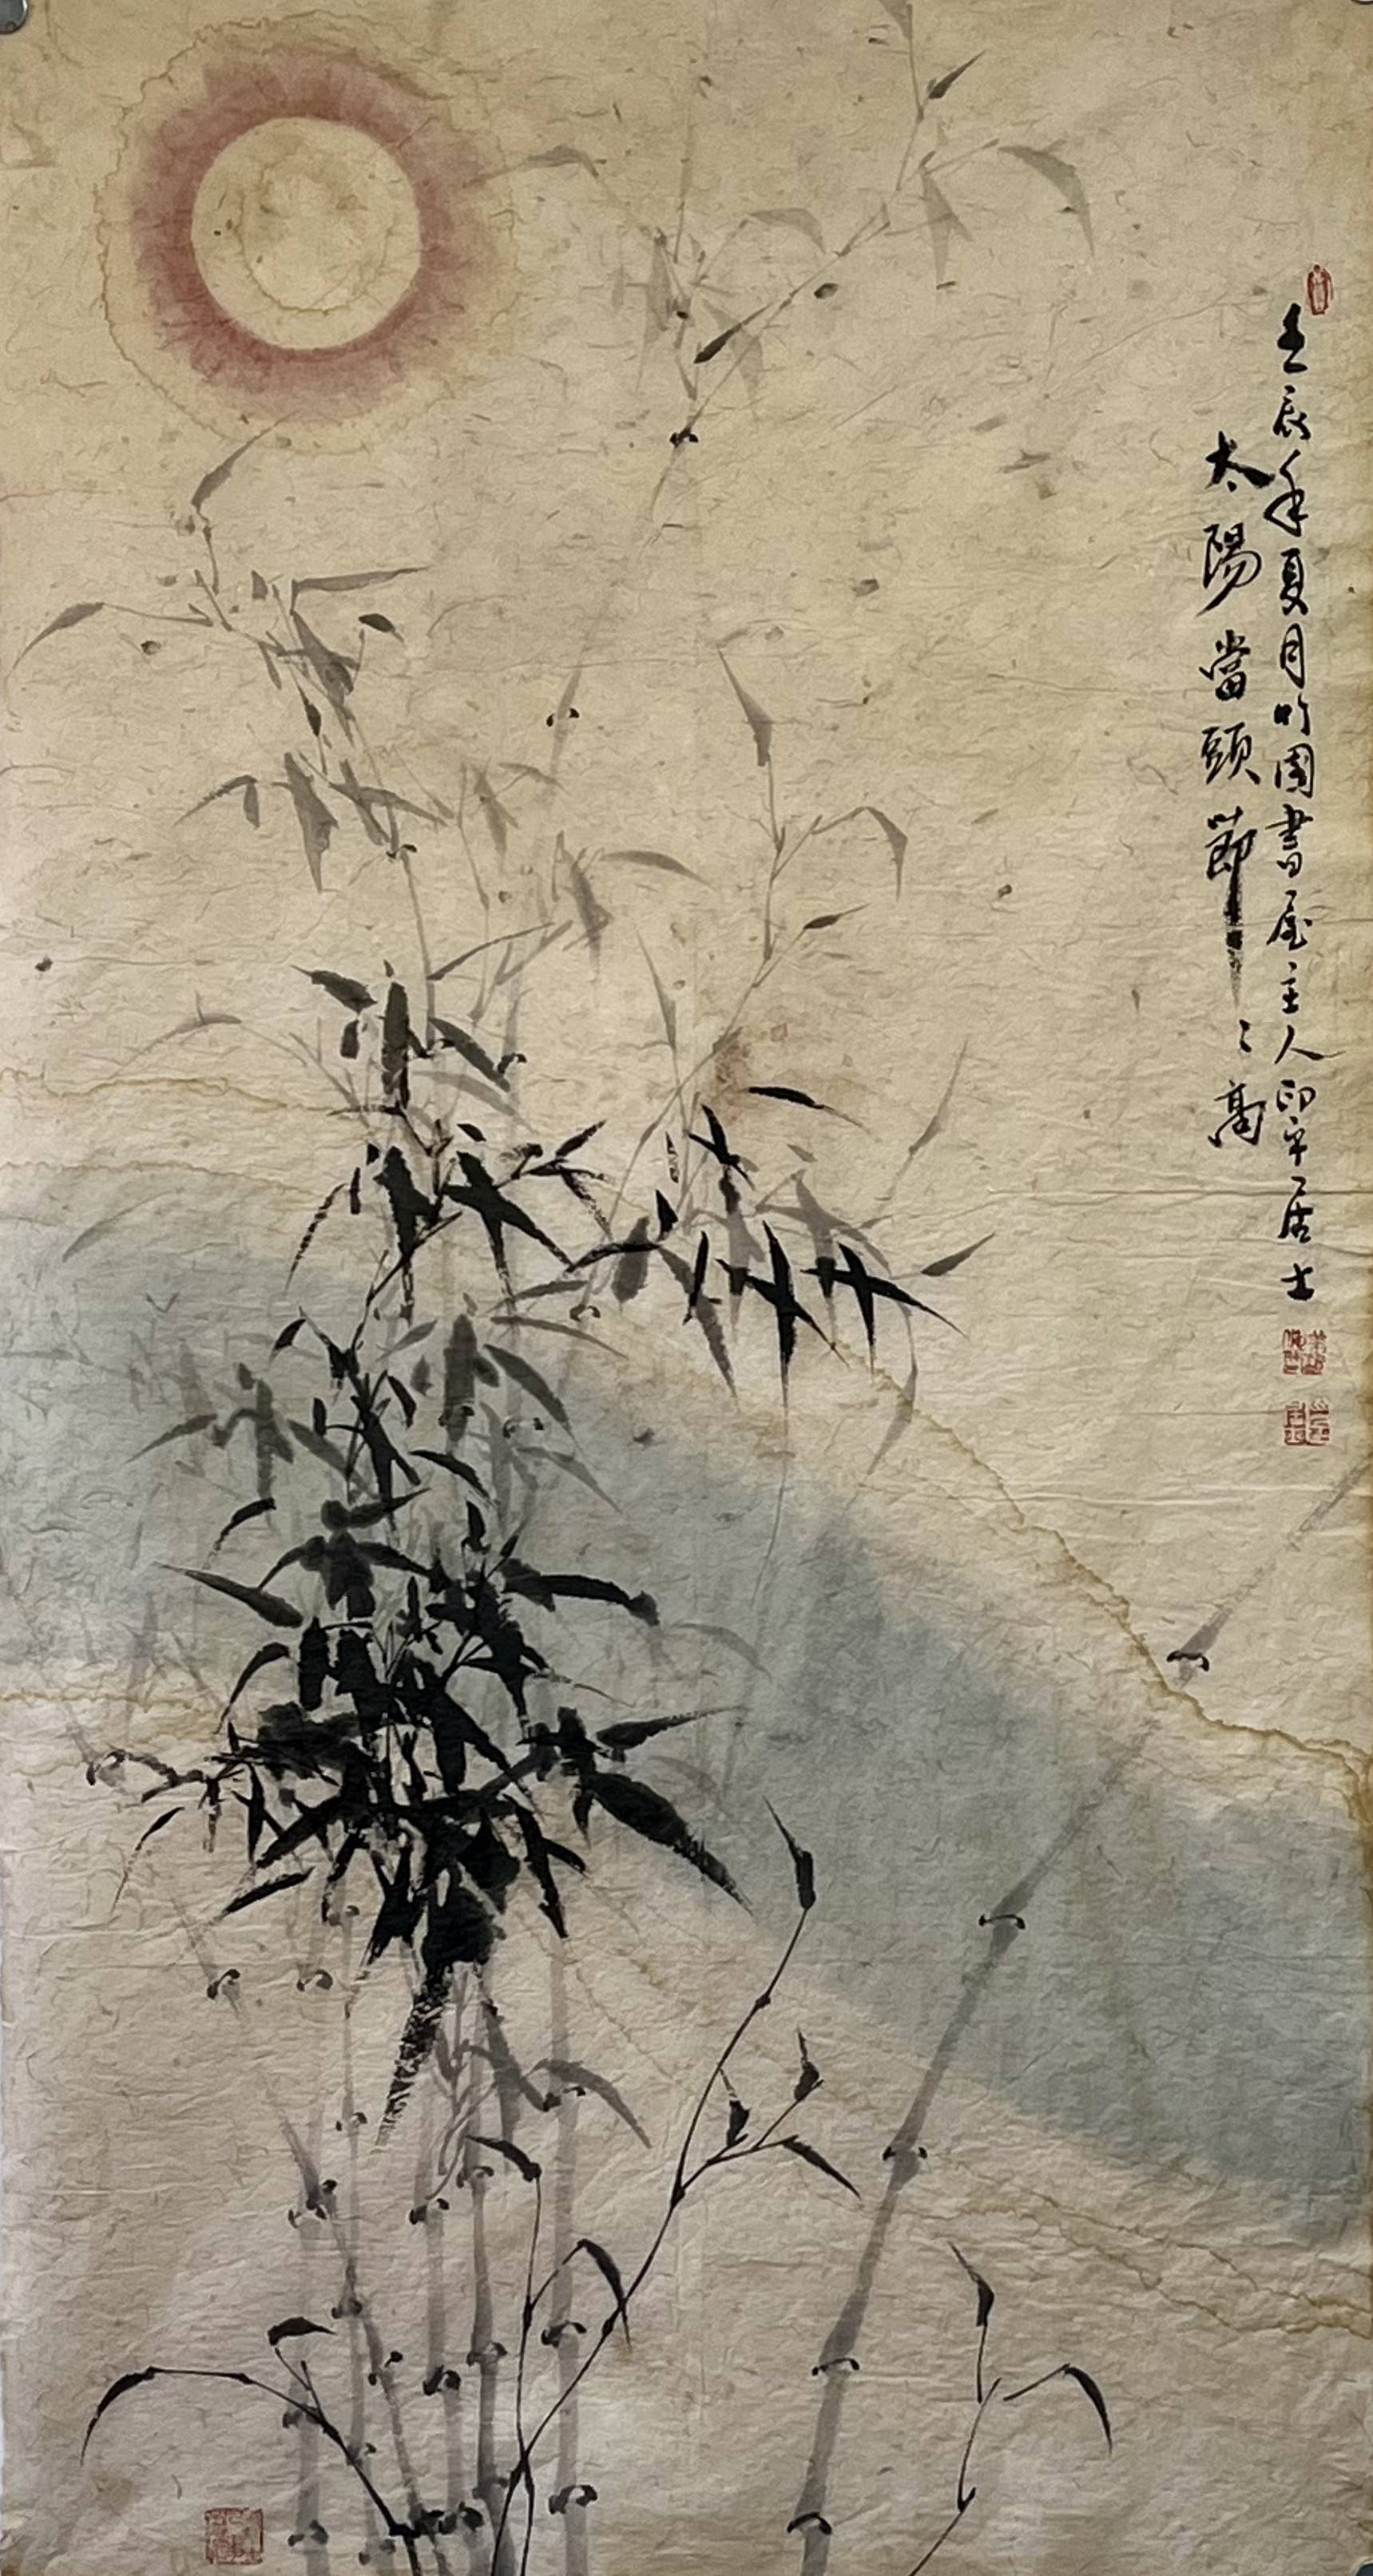 壬辰年夏月竹園書屋主人印平居士
太陽當頭節〻高